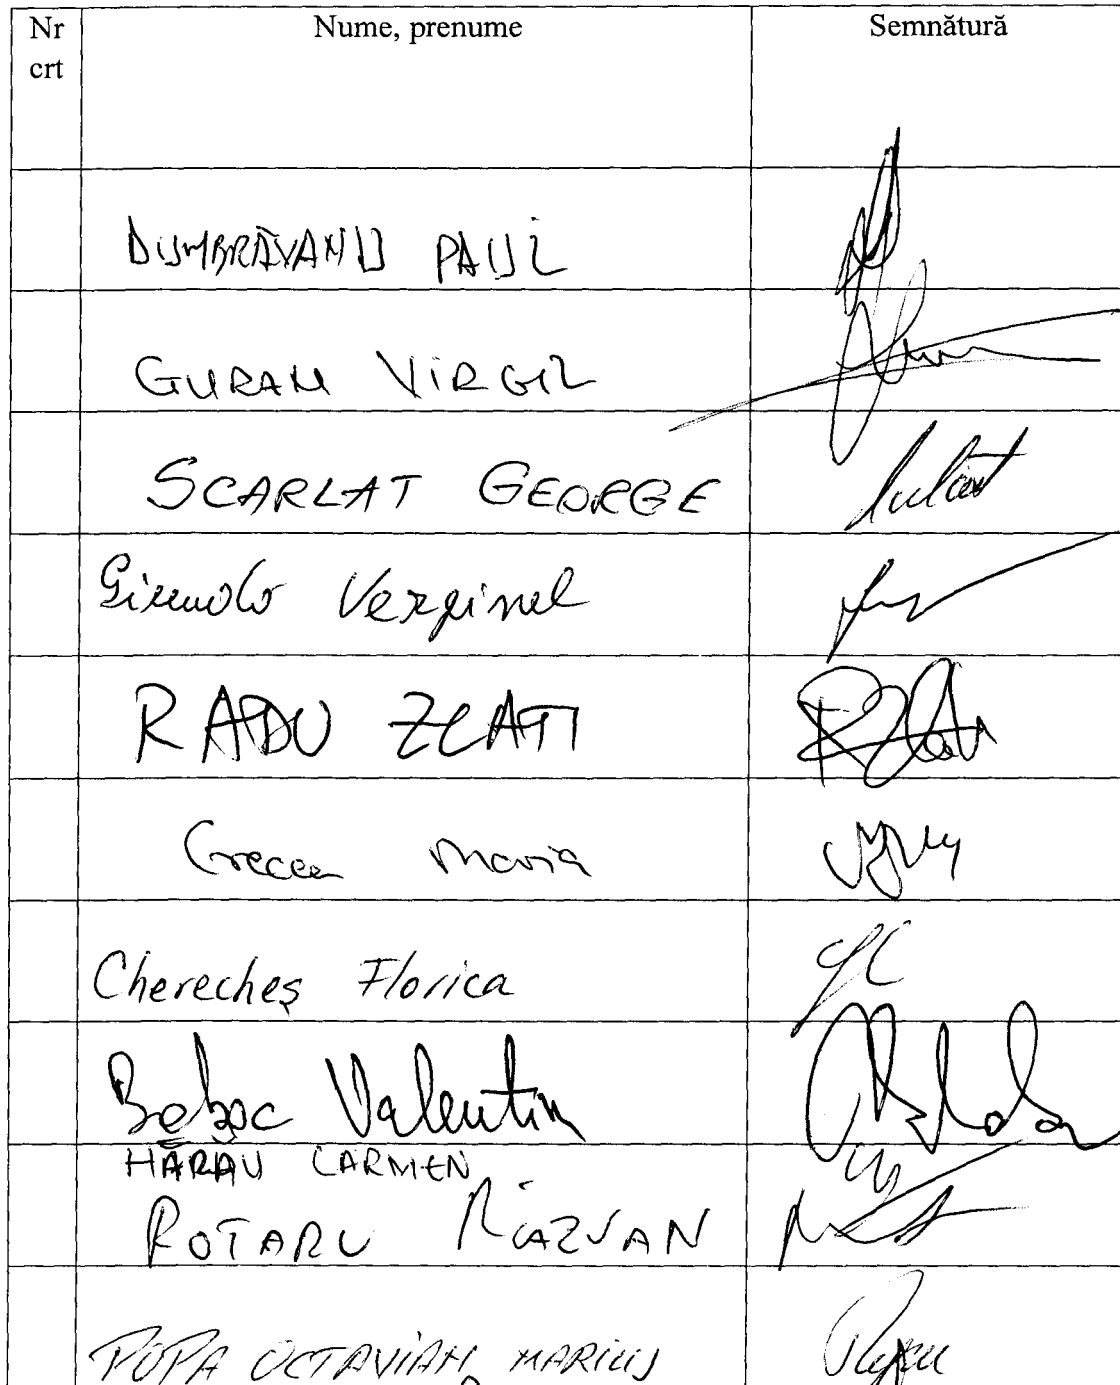 Nr crt Nume, prenume Semnătură
DUMBRĂVANU PAUL
GURAN VIRGIL
SCARLAT GEORGE
Verginel
RADU ZLATI
Grecea Maria
Cherecheș Florica
Valentin
HĂRĂU CARMEN
ROTARU RĂZVAN
POPA OCTAVIAN MARIUS